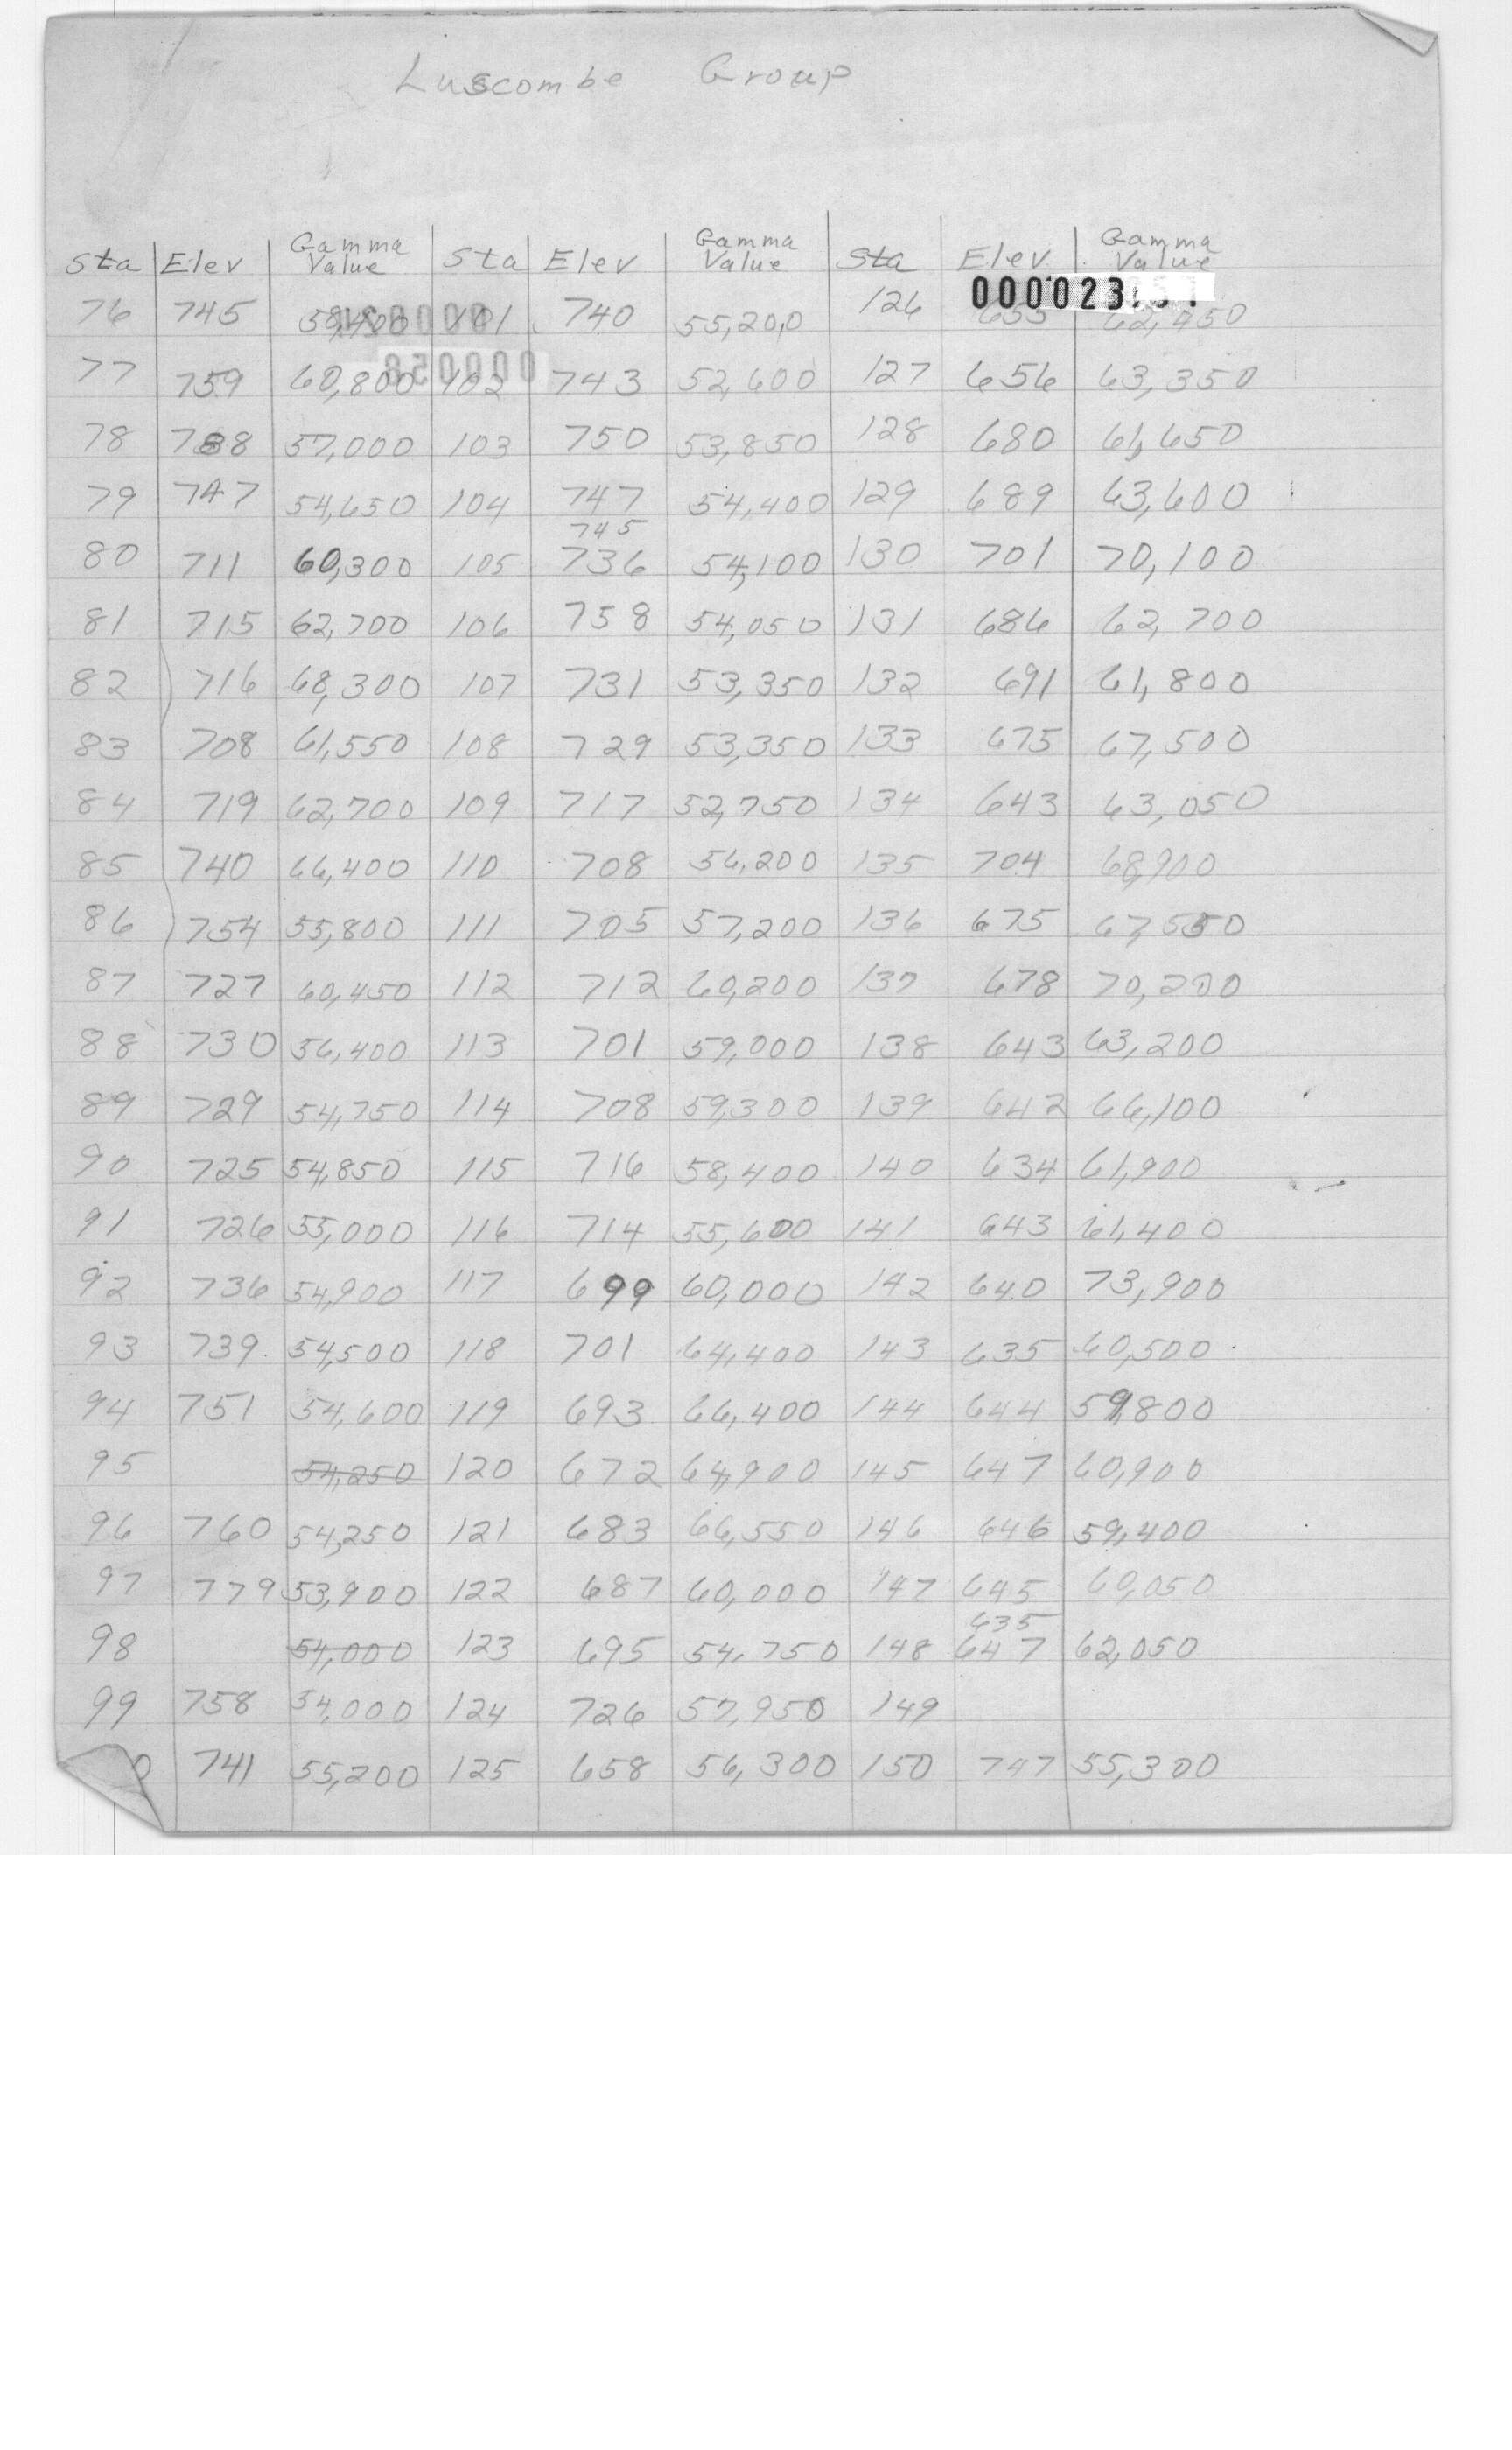 Luscombe Group
Sta Elev Gamma Value Sta Elev Gamma Value Sta Elev Gamma Value
000023
76 745 101 740 55,200 126 62,450
77 759 60,800 102 743 52,600 127 656 63,350
78 788 57,000 103 750 53,850 128 680 61,650
79 747 54,650 104 747 54,400 129 689 63,600
745
80 711 60,300 105 736 54,100 130 701 70,100
81 715 62,700 106 758 54,050 131 686 62,700
82 716 68,300 107 731 53,350 132 691 61,800
83 708 61,550 108 729 53,350 133 675 67,500
84 719 62,700 109 717 52,750 134 643 63,050
85 740 66,400 110 708 56,200 135 704 68,900
86 754 55,800 111 705 57,200 136 675 67,550
87 727 60,450 112 712 60,200 137 678 70,200
88 730 56,400 113 701 59,000 138 643 63,200
89 729 54,750 114 708 59,300 139 642 66,100
90 725 54,850 115 716 58,400 140 634 61,900
91 726 55,000 116 714 55,600 141 643 61,400
92 736 54,900 117 699 60,000 142 640 73,900
93 739 54,500 118 701 64,400 143 635 60,500
94 751 54,600 119 693 66,400 144 644 59,800
95 54,250 120 672 64,900 145 647 60,900
96 760 54,250 121 683 66,550 146 646 59,400
97 779 53,900 122 687 60,000 147 645 60,050
635
98 54,000 123 695 54,750 148 647 62,050
99 758 54,000 124 726 57,950 149
741 55,200 125 658 56,300 150 747 55,300